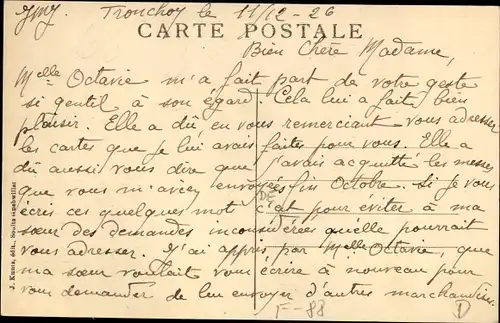 JMJ Tronchoy le 11/12 - 26
CARTE POSTALE
Bien Chère Madame,
Melle Octavie m'a fait part de votre geste
si gentil à son égard. Cela lui a fait bien
plaisir. Elle a dû, en vous remerciant vous adresser
les cartes que je lui avais faites pour vous. Elle a
dû aussi vous dire que j'avais acquitté les messes
que vous m'aviez envoyées fin Octobre. Si je vous
écris ces quelques mot c'est pour éviter à ma
sœur des demandes inconsidérées qu'elle pourrait
vous adresser. J'ai appris, par Melle Octavie, que
ma sœur voulait vous écrire à nouveau pour
vous demander de lui envoyer d'autres marchandises.
DE
F-88
D
J. Kuntz, édit.